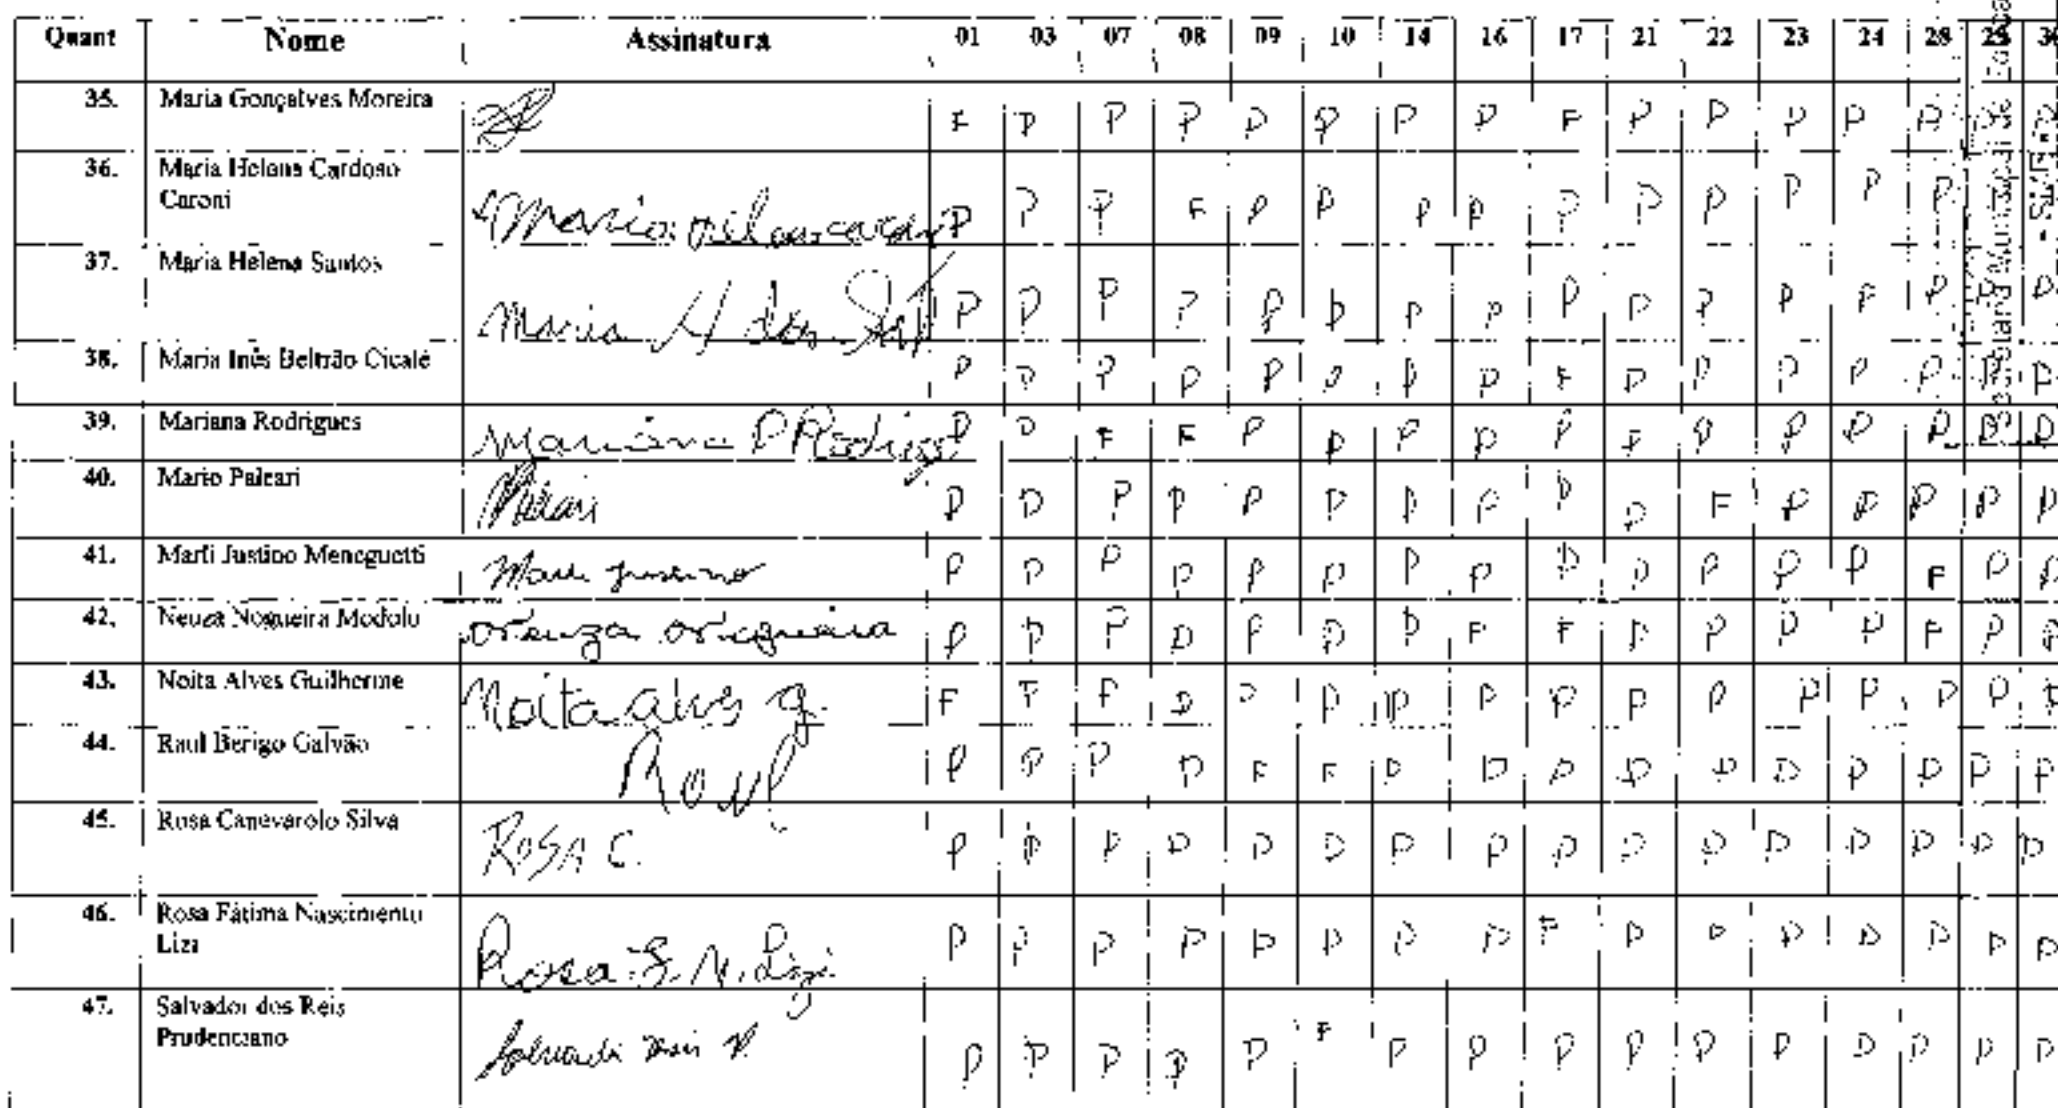 Quant Nome Assinatura 01 03 07 08 09 10 14 16 17 21 22 23 24 28 29
35. Maria Gonçalves Moreira F P P P P P P P F P P P P P P P
36. Maria Helena Cardoso P P P F P P P P P P P P P P P
Caroni
37. Maria Helena Santos Maria H dos P P P P P P P P P P P P F P P P
38. Maria Inês Beltrão Cicale P P P P P P P P F P P P P P P P
39. Mariana Rodrigues Mariana P Rodrigues P P F F P P P P P P P P P P P P
40. Mario Paleari P P P P P P P P P P F P P P P P
41. Marli Justino Meneguetti Marli Justino P P P P P P P P P P P P P F P P
42. Neuza Nogueira Modolo Neuza Nogueira P P P P P P P F F P P P P F P P
43. Noita Alves Guilherme Noita alves g. F P P P P P P P P P P P P P P P
44. Raul Berigo Galvão Raul P P P P F F P P P P P P P P P P
45. Rosa Canevarolo Silva ROSA C. P P P P P P P P P P P P P P P P
46. Rosa Fátima Nascimento Rosa F. N. P P P P P P P P F P P P P P P P
Liza
47. Salvador dos Reis P P P P P F P P P P P P P P P P
Prudenciano